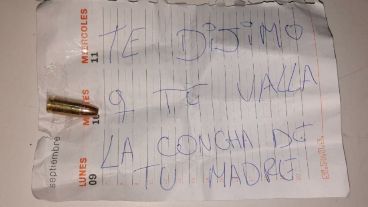 TE DIJIMO
Q TE VALLA
LA CONCHA DE
TU MADRE
MIERCOLES
11
10
septiembre
LUNES
09